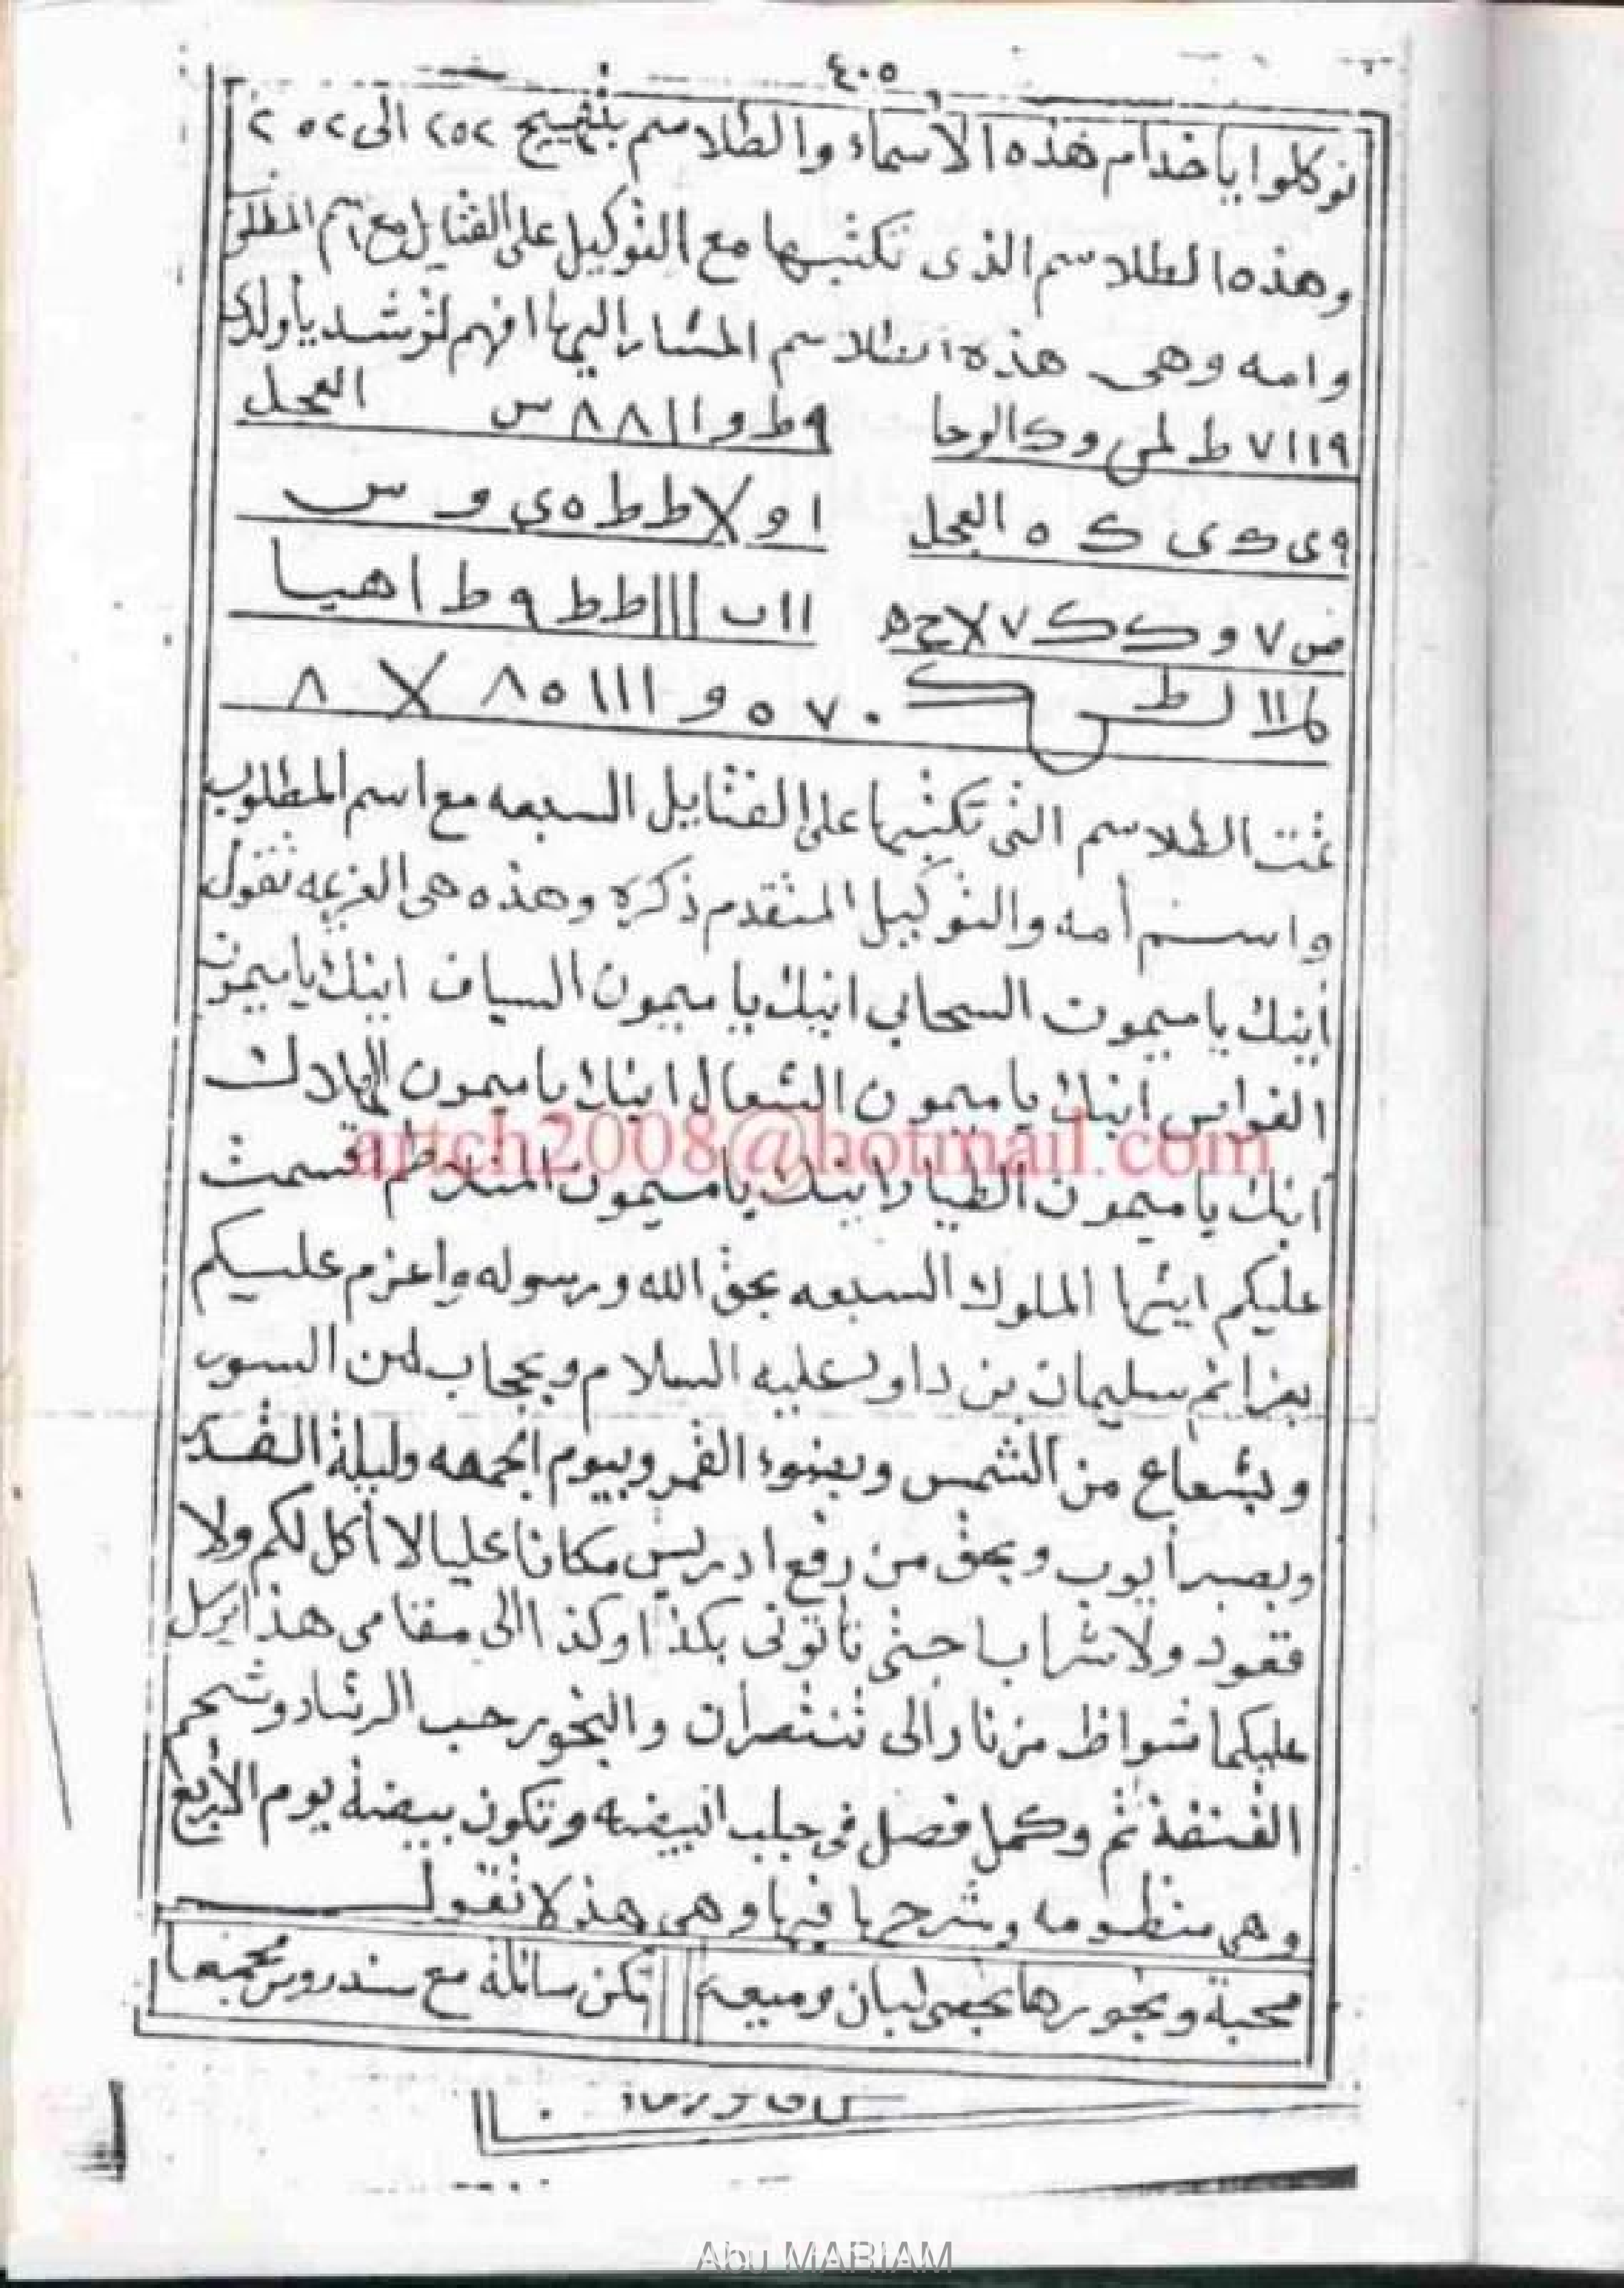 ٤٠٥
توكلوا ياخدام هذه الاسماء والطلاسم بتهييج ٢٥٢ الى ٢٥٢
وهذه الطلاسم الذى تكتبها مع التوكيل على الفتايل مع اسم المطلوب
وامه وهى هذه الطلاسم المشار اليها افهم لترشد ياولدى
٩١١٧ ط لمى وكالوحا ٩ط و١١٨٨ س العجل
٩ى ك ى ك ه العجل ا و لا ط ط ه ى و س
٧ و ك ك ٧ لا ح ه ١١ ب ||| ط ط ٩ ط اهيا
ك . ٧ ٥ و ١١١ ٥ ٨ X ٨
تمت الطلاسم التى تكتبها على الفتايل السبعه مع اسم المطلوب
واسم أمه والتوكيل المتقدم ذكره وهذه هى العزيمه تقول
أينك ياميمون السحابى اينك ياميمون السياف اينك ياميمون
الغواص اينك ياميمون الشعال اينك ياميمون
artch2008@hotmail.com
اينك ياميمون الطيار اينك ياميمون اقسمت
عليكم ايتها الملوك السبعه بحق الله ورسوله واعزم عليكم
بعزائم سليمان بن داود عليه السلام وبحجاب من السور
وبشعاع من الشمس وبضوء القمر وبيوم الجمعه وليلة القدر
وبصبر أيوب وبحق من رفع ادريس مكانا عليا لا أكل لكم ولا
قعود ولا شراب حتى تأتونى بكذا وكذا الى مقامى هذا يرسل
عليكما شواظ من نار الى تنتصران والبخور حب الرشاد وشحم
القنفذ تم وكمل فصل فى جلب البيضه وتكون بيضة يوم الأربع
وهى منظومه وشرحها فيها وهى هذه لا تقول
محبة وبخورها بجصى لبان وميعة تكن سائلة مع سندروس بجمعها
Abu MARIAM